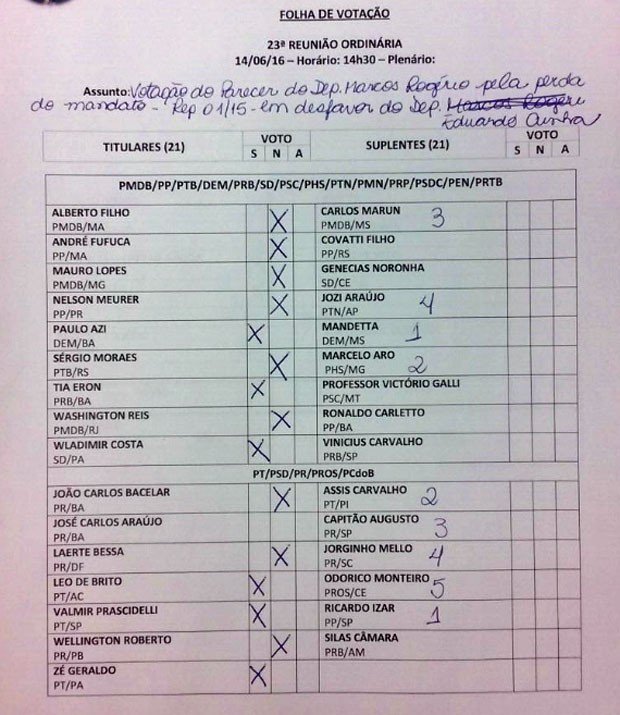 FOLHA DE VOTAÇÃO
23ª REUNIÃO ORDINÁRIA
14/06/16 – Horário: 14h30 – Plenário:
Assunto: Votação do Parecer do Dep. Marcos Rogério pela perda
do mandato - Rep 01/15 - em desfavor do Dep. Marcos Rogéri
Eduardo Cunha
TITULARES (21) VOTO SUPLENTES (21) VOTO
S N A S N A
PMDB/PP/PTB/DEM/PRB/SD/PSC/PHS/PTN/PMN/PRP/PSDC/PEN/PRTB
ALBERTO FILHO X CARLOS MARUN 3
PMDB/MA PMDB/MS
ANDRÉ FUFUCA X COVATTI FILHO
PP/MA PP/RS
MAURO LOPES X GENECIAS NORONHA
PMDB/MG SD/CE
NELSON MEURER X JOZI ARAÚJO 4
PP/PR PTN/AP
PAULO AZI X MANDETTA 1
DEM/BA DEM/MS
SÉRGIO MORAES X MARCELO ARO 2
PTB/RS PHS/MG
TIA ERON X PROFESSOR VICTÓRIO GALLI
PRB/BA PSC/MT
WASHINGTON REIS X RONALDO CARLETTO
PMDB/RJ PP/BA
WLADIMIR COSTA X VINICIUS CARVALHO
SD/PA PRB/SP
PT/PSD/PR/PROS/PCdoB
JOÃO CARLOS BACELAR X ASSIS CARVALHO 2
PR/BA PT/PI
JOSÉ CARLOS ARAÚJO CAPITÃO AUGUSTO 3
PR/BA PR/SP
LAERTE BESSA X JORGINHO MELLO 4
PR/DF PR/SC
LEO DE BRITO X ODORICO MONTEIRO 5
PT/AC PROS/CE
VALMIR PRASCIDELLI X RICARDO IZAR 1
PT/SP PP/SP
WELLINGTON ROBERTO X SILAS CÂMARA
PR/PB PRB/AM
ZÉ GERALDO X
PT/PA